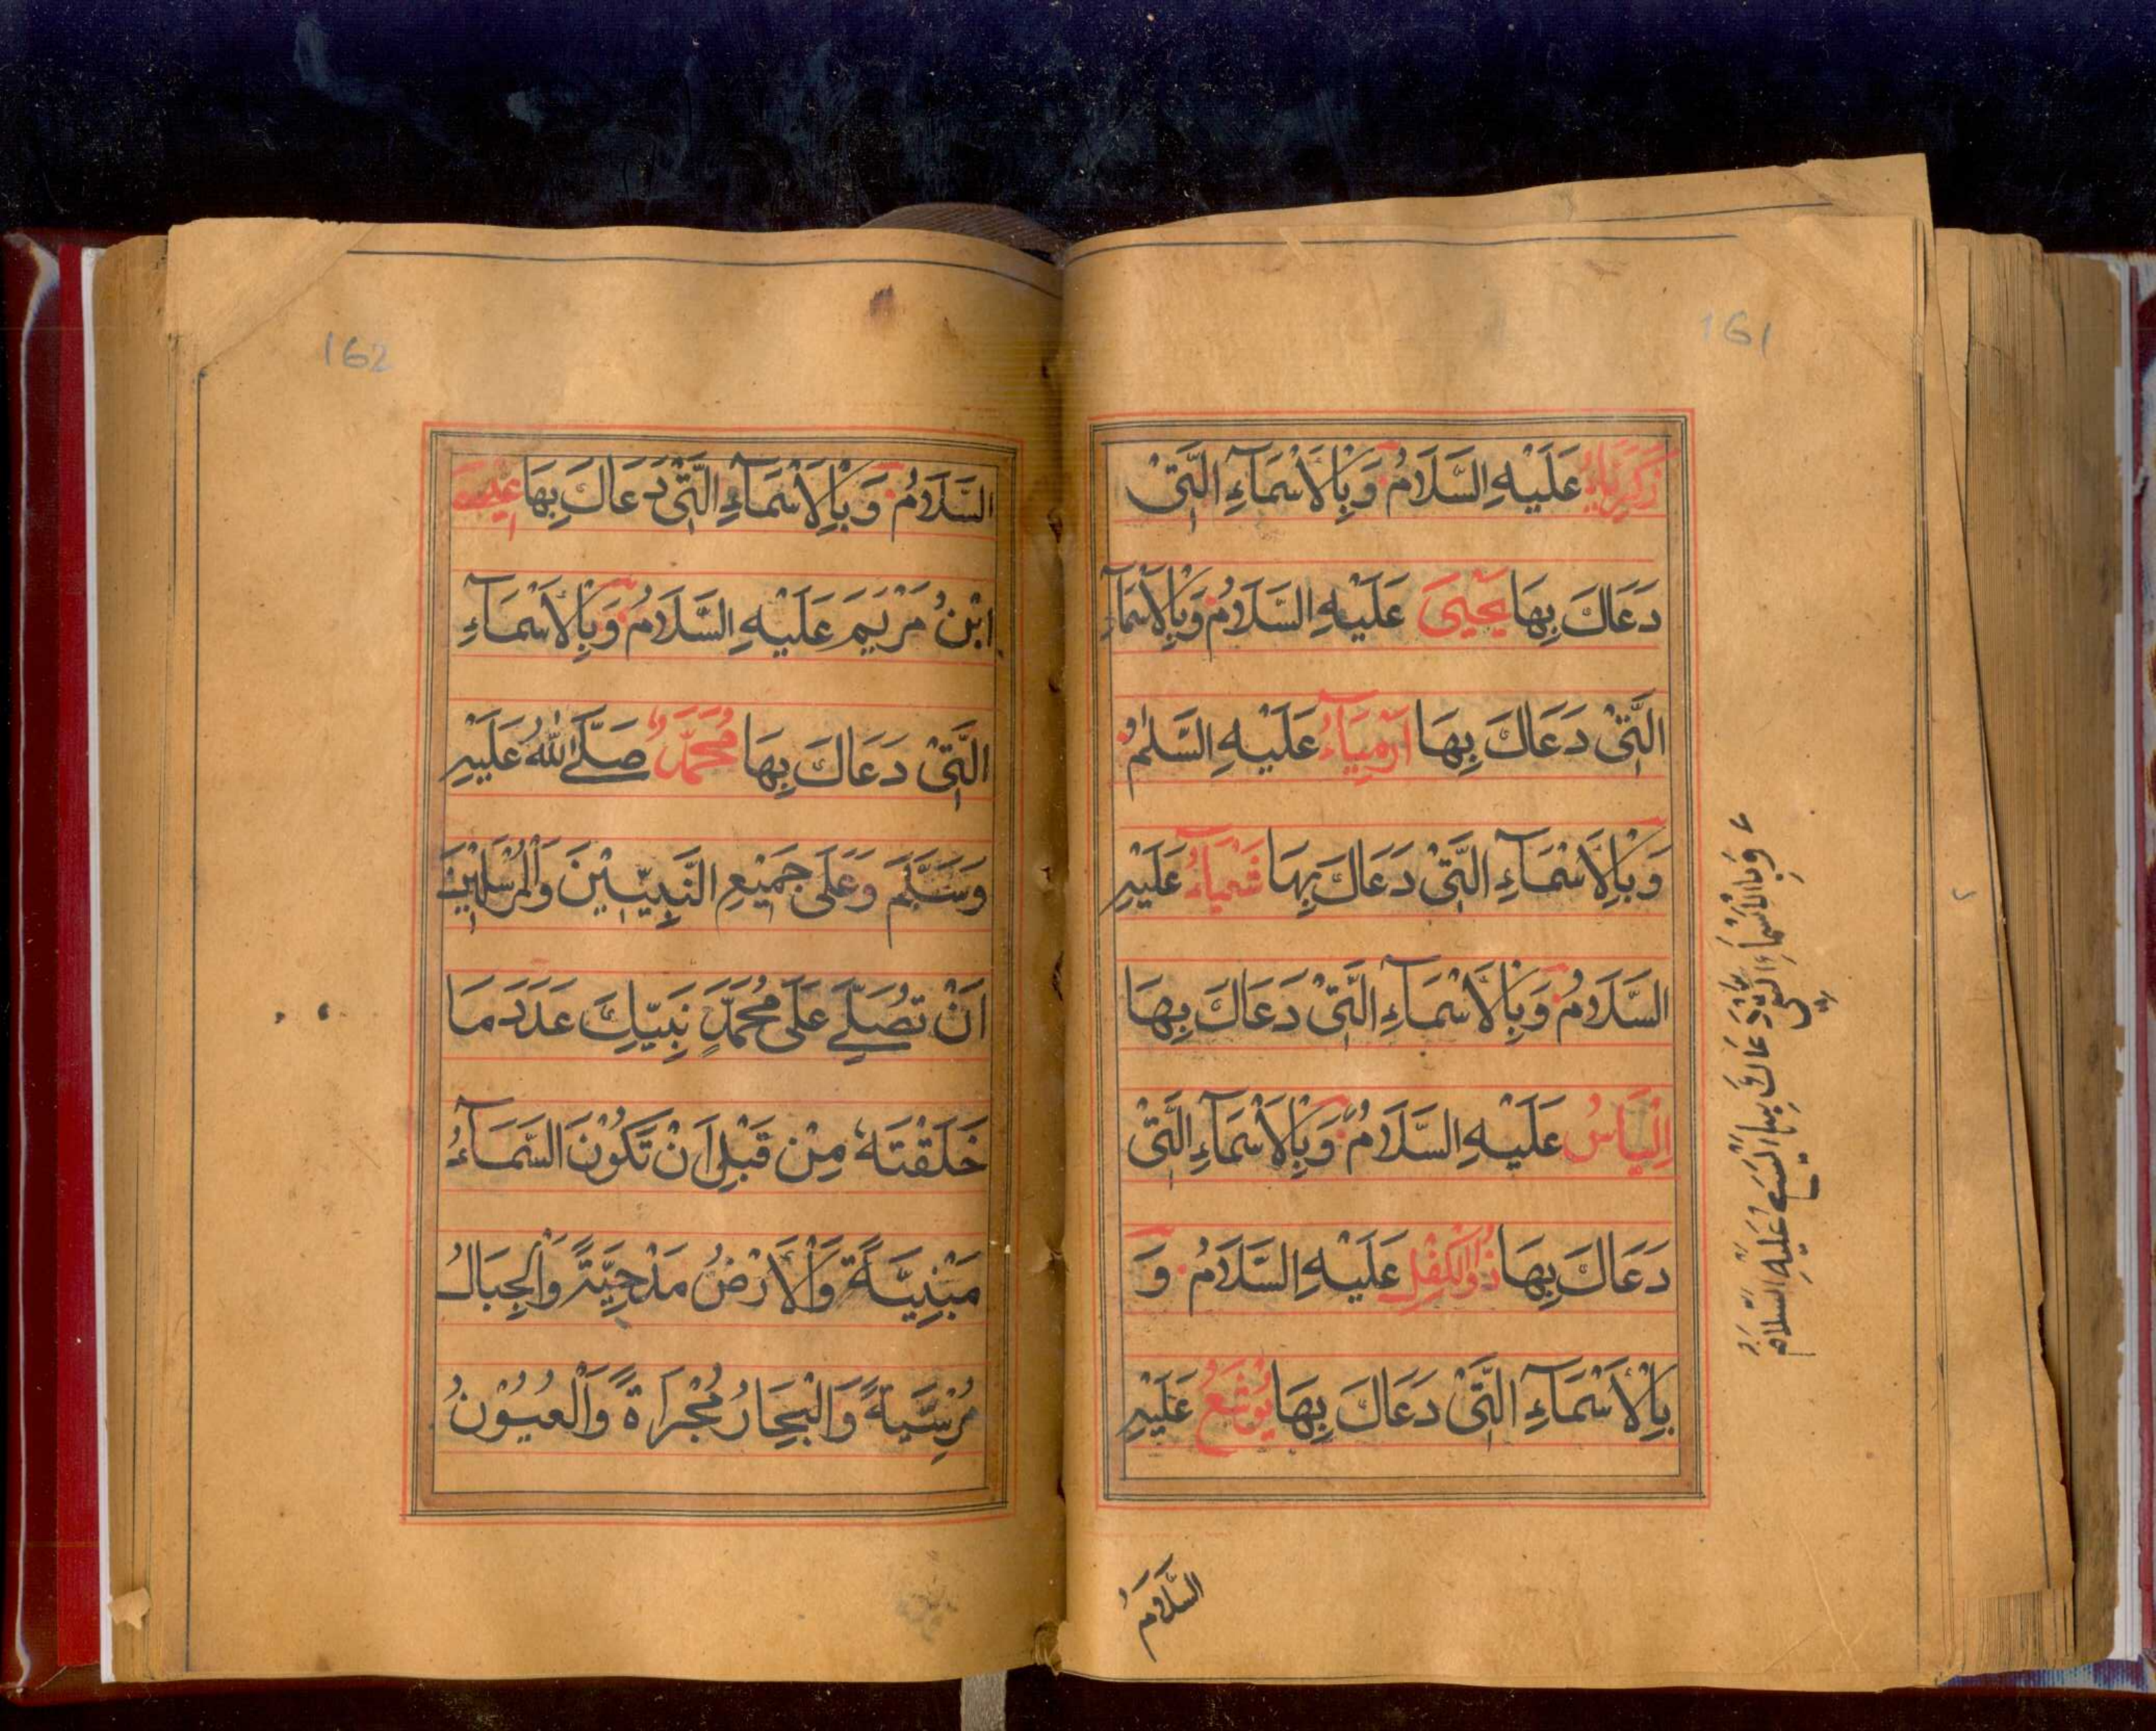 161
زَكَرِيَّاءُ عَلَيْهِ السَّلَامُ وَبِالْاَسْمَآءِ الَّتِيْ
دَعَاكَ بِهَا يَحْيٰى عَلَيْهِ السَّلَامُ وَبِالْاَسْمَآءِ
الَّتِيْ دَعَاكَ بِهَا اَرْمِيَآءُ عَلَيْهِ السَّلٰمُ
وَبِالْاَسْمَآءِ الَّتِيْ دَعَاكَ بِهَا شَعْيَآءُ عَلَيْهِ
السَّلَامُ وَبِالْاَسْمَآءِ الَّتِيْ دَعَاكَ بِهَا
اِلْيَاسُ عَلَيْهِ السَّلَامُ وَبِالْاَسْمَآءِ الَّتِيْ
دَعَاكَ بِهَا ذُوالْكِفْلِ عَلَيْهِ السَّلَامُ وَ
بِالْاَسْمَآءِ الَّتِيْ دَعَاكَ بِهَا يُوْشَعُ عَلَيْهِ
السَّلَامُ
وَبِالْاَسْمَآءِ الَّتِيْ دَعَاكَ بِهَا الْيَسَعُ عَلَيْهِ السَّلَامُ
162
السَّلَامُ وَبِالْاَسْمَآءِ الَّتِيْ دَعَاكَ بِهَا عِيْسَى
ابْنُ مَرْيَمَ عَلَيْهِ السَّلَامُ وَبِالْاَسْمَآءِ
الَّتِيْ دَعَاكَ بِهَا مُحَمَّدٌ صَلَّى اللّٰهُ عَلَيْهِ
وَسَلَّمَ وَعَلٰى جَمِيْعِ النَّبِيّيْنَ وَالْمُرْسَلِيْنَ
اَنْ تُصَلِّيَ عَلٰى مُحَمَّدٍ نَبِيِّكَ عَدَدَ مَا
خَلَقْتَهٗ مِنْ قَبْلِ اَنْ تَكُوْنَ السَّمَآءُ
مَبْنِيَّةً وَالْاَرْضُ مَدْحِيَّةً وَالْجِبَالُ
مُرْسِيَةً وَالْبِحَارُ مُجْرَاةً وَالْعُيُوْنُ